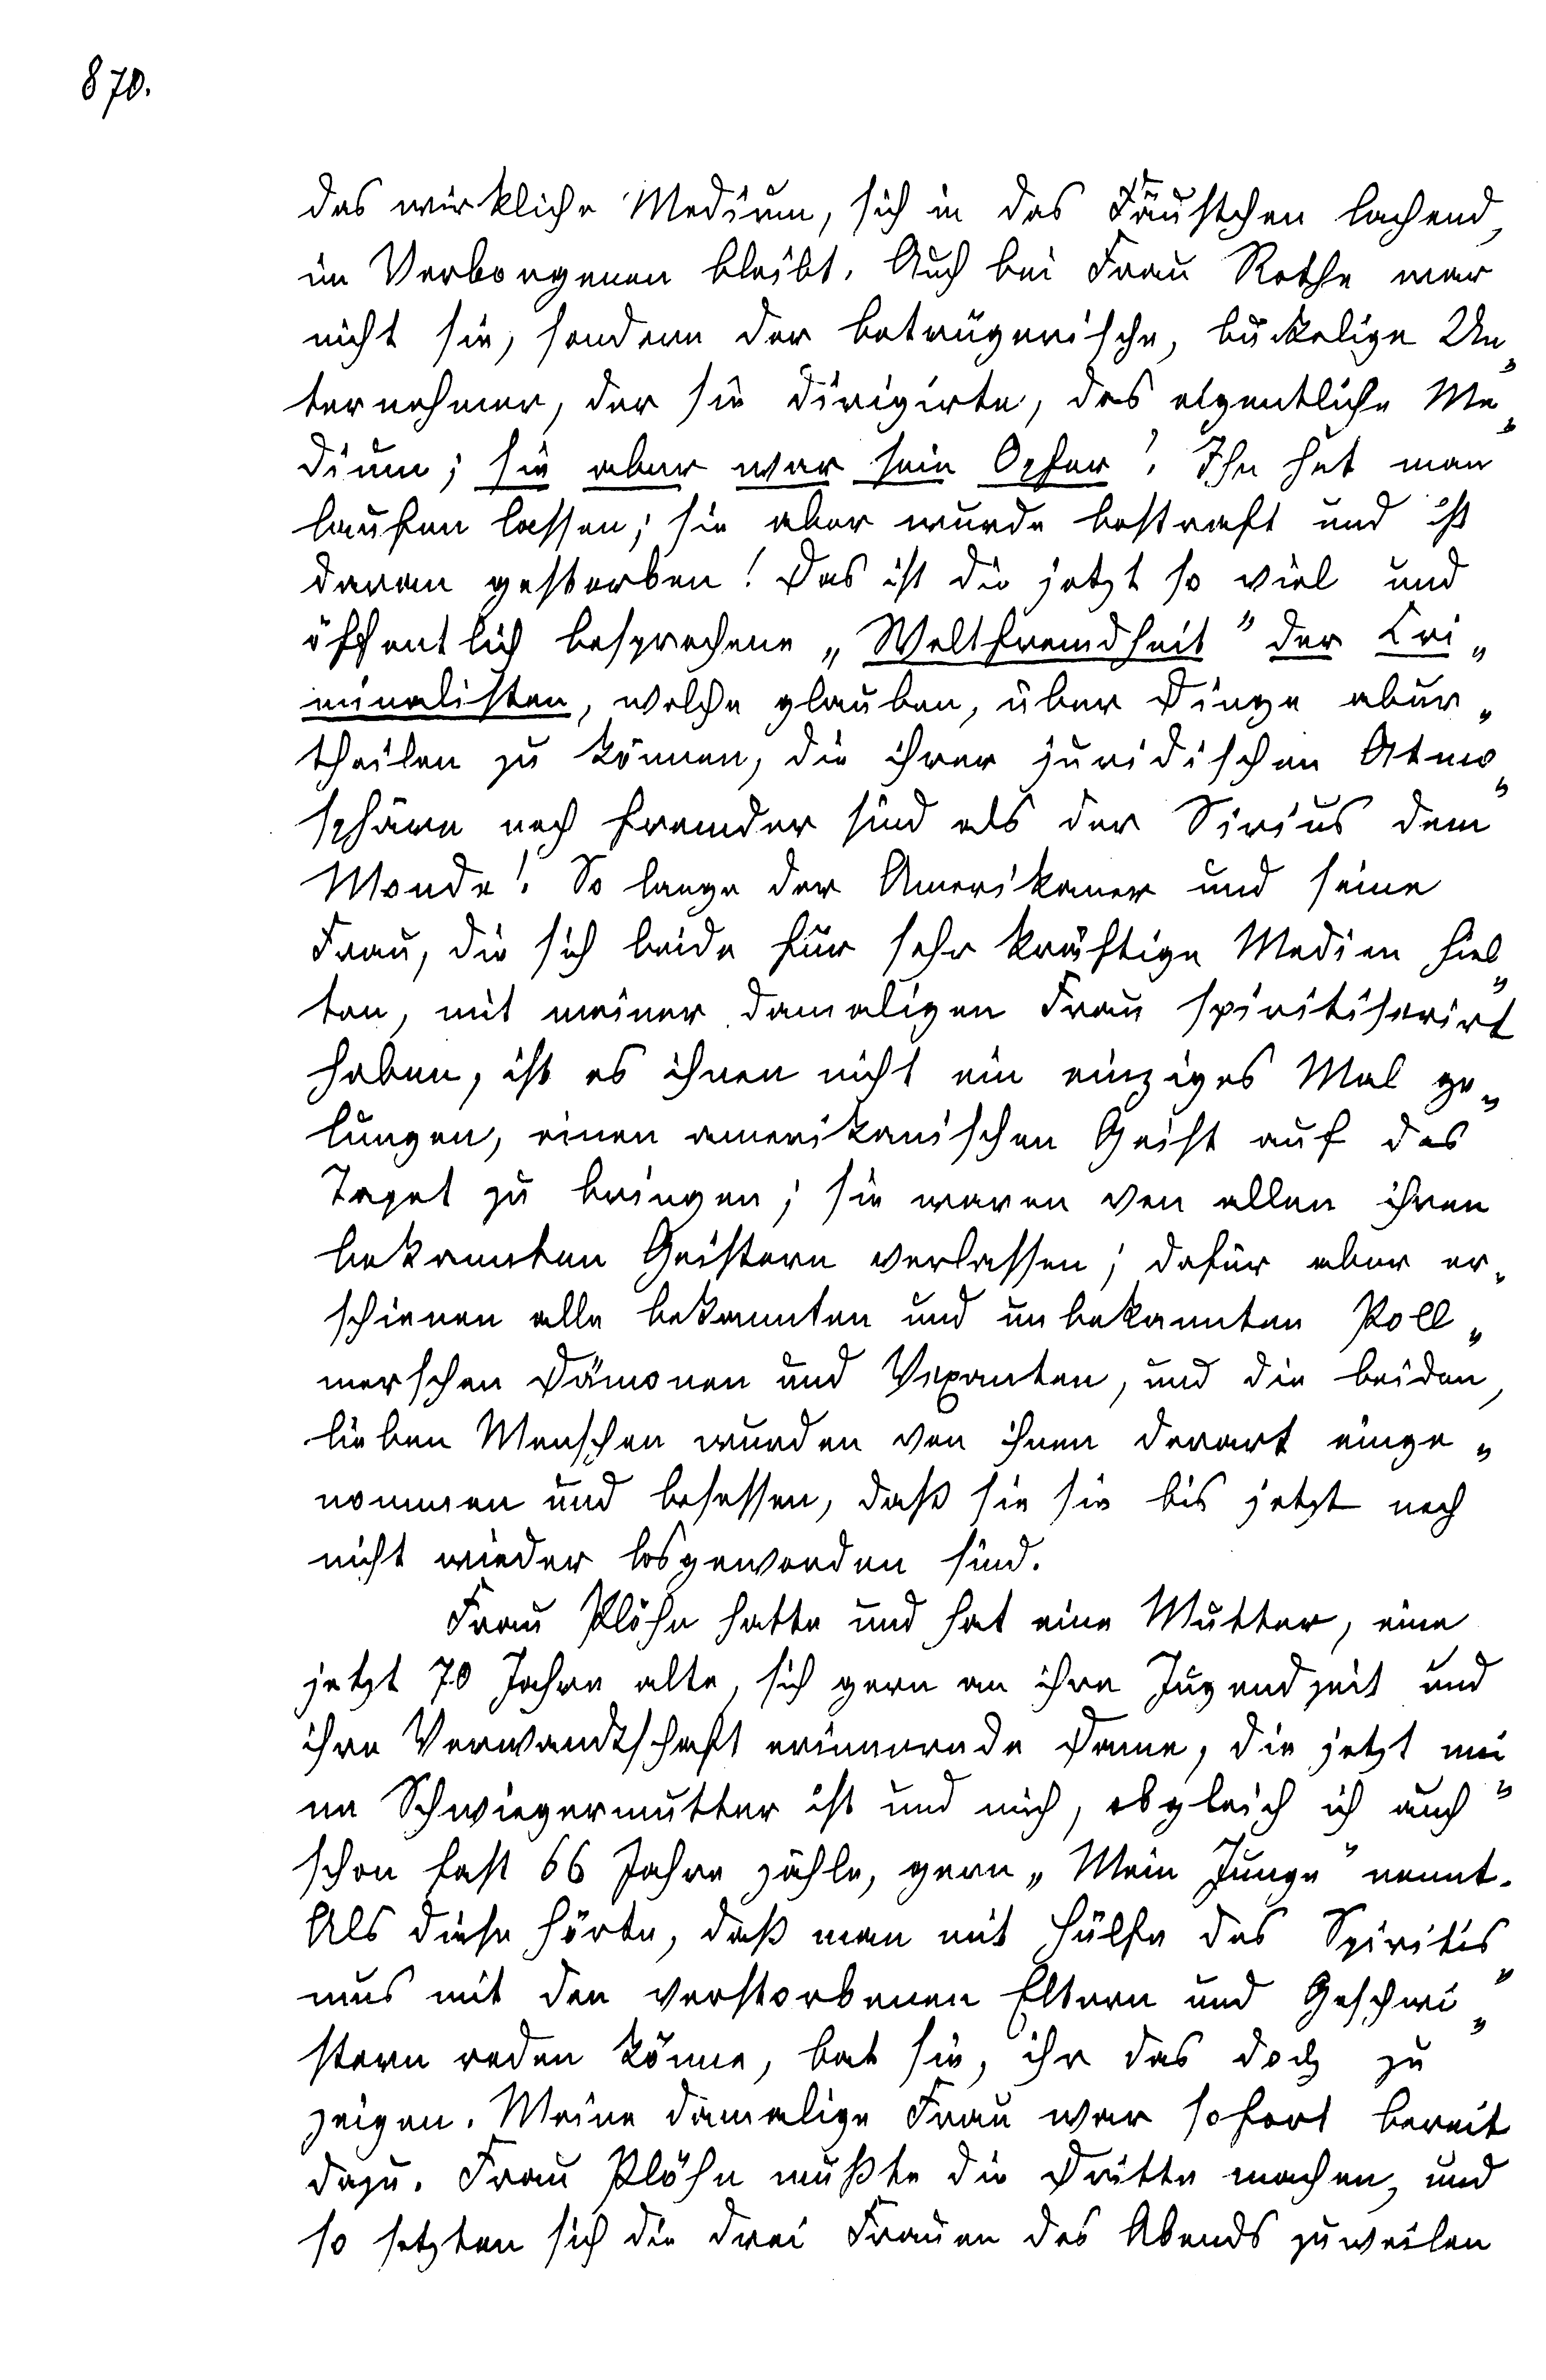 870.
das wirkliche Medium, sich in das Fäustchen lachend,
im Verborgenen bleibt. Auch bei Frau Rothe war
nicht sie, sondern der betrügerische, buckelige Un„
ternehmer, der sie dirigirte, das eigentliche Me„
dium; sie aber war sein Opfer! Ihn hat man
laufen lassen; sie aber wurde bestraft und ist
daran gestorben! Das ist die jetzt so viel und
öffentlich besprochene „Weltfremdheit" der Cri„
minalisten, welche glauben, über Dinge abur„
theilen zu können, die ihrer juridischen Atmo„
sphäre noch fremder sind als der Sirius dem
Monde! So lange der Amerikaner und seine
Frau, die sich beide für sehr kräftige Medien hiel„
ten, mit meiner damaligen Frau spiritiserirt
haben, ist es ihnen nicht ein einziges Mal ge„
lungen, einen amerikanischen Geist auf das
Tapet zu bringen; sie waren von allen ihren
bekannten Geistern verlassen; dafür aber er„
schienen alle bekannten und unbekannten Poll„
merschen Dämonen und Vexanten, und die beiden,
lieben Menschen wurden von ihnen derart einge„
nommen und besessen, daß sie sie bis jetzt noch
nicht wieder losgeworden sind.
Frau Plöhn hatte und hat eine Mutter, eine
jetzt 70 Jahre alte, sich gern an ihre Jugendzeit und
ihre Verwandtschaft erinnernde Dame, die jetzt mei„
ne Schwiegermutter ist und mich, obgleich ich auch
schon fast 66 Jahre zähle, gern „Mein Junge" nennt.
Als diese hörte, daß man mit Hülfe des Spiritis„
mus mit den verstorbenen Eltern und Geschwi„
stern reden könne, bat sie, ihr das doch zu
zeigen. Meine damalige Frau war sofort bereit
dazu. Frau Plöhn mußte die Dritte machen, und
so setzten sich die drei Frauen des Abends zuweilen